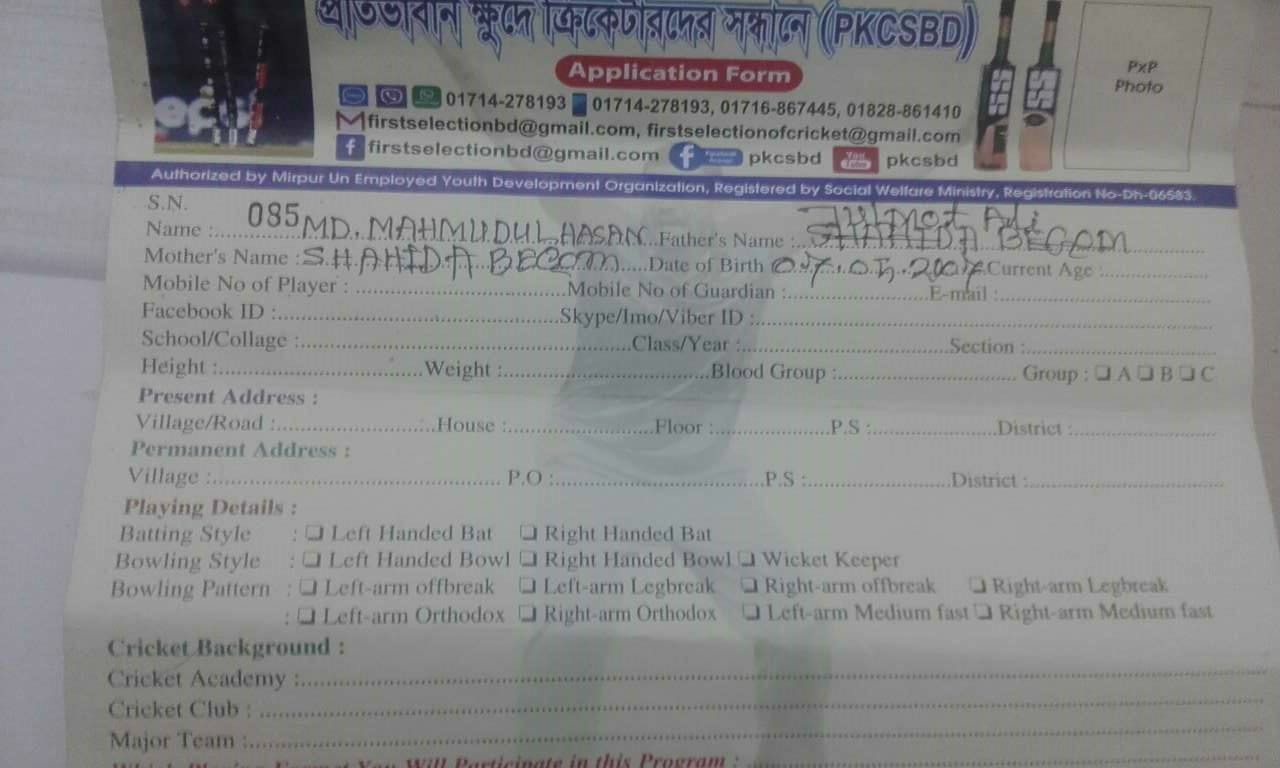 প্রতিভাবান ক্ষুদে ক্রিকেটারদের সন্ধানে (PKCSBD)
Application Form
PxP
Photo
01714-278193 01714-278193, 01716-867445, 01828-861410
firstselectionbd@gmail.com, firstselectionofcricket@gmail.com
firstselectionbd@gmail.com pkcsbd You Tube pkcsbd
Authorized by Mirpur Un Employed Youth Development Organization, Registered by Social Welfare Ministry, Registration No-Dh-06583.
S.N. 085
Name : MD. MAHMUDUL HASAN Father's Name : SHAHIDA BEGOM
Mother's Name : SHAHIDA BEGOM Date of Birth 07.05.2007 Current Age :
Mobile No of Player : Mobile No of Guardian : E-mail :
Facebook ID : Skype/Imo/Viber ID :
School/Collage : Class/Year : Section :
Height : Weight : Blood Group : Group : ❑ A ❑ B ❑ C
Present Address :
Village/Road : House : Floor : P.S : District :
Permanent Address :
Village : P.O : P.S : District :
Playing Details :
Batting Style : ❑ Left Handed Bat ❑ Right Handed Bat
Bowling Style : ❑ Left Handed Bowl ❑ Right Handed Bowl ❑ Wicket Keeper
Bowling Pattern : ❑ Left-arm offbreak ❑ Left-arm Legbreak ❑ Right-arm offbreak ❑ Right-arm Legbreak
: ❑ Left-arm Orthodox ❑ Right-arm Orthodox ❑ Left-arm Medium fast ❑ Right-arm Medium fast
Cricket Background :
Cricket Academy :
Cricket Club :
Major Team :
Which Playing Format You Will Participate in this Program :